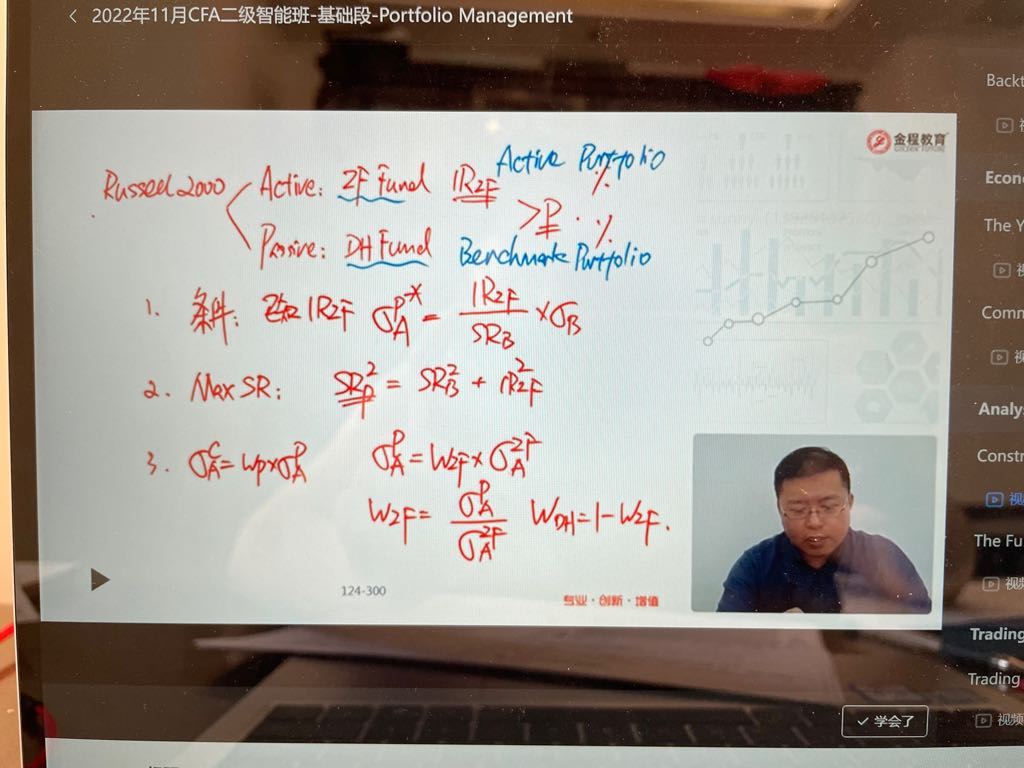 2022年11月CFA二级智能班-基础段-Portfolio Management
金程教育
GOLDEN FUTURE
Active Portfolio
Russell 2000
Active: ZF Fund IRZF %
> P. %
Passive: DH Fund Benchmark Portfolio
1. 条件: IRZF σ_A^P* = IRZF / SRB × σB
2. Max SR: SRP² = SRB² + IRZF²
3. σ_A^C = WP × σ_A^P σ_A^P = WZF × σ_A^ZF
WZF = σ_A^P / σ_A^ZF WDH = 1 - WZF.
124-300
专业·创新·增值
学会了
Backt
Econo
The Y
视
Comm
视
Analy
Constr
视频
The Fu
视频
Trading
Trading
视频